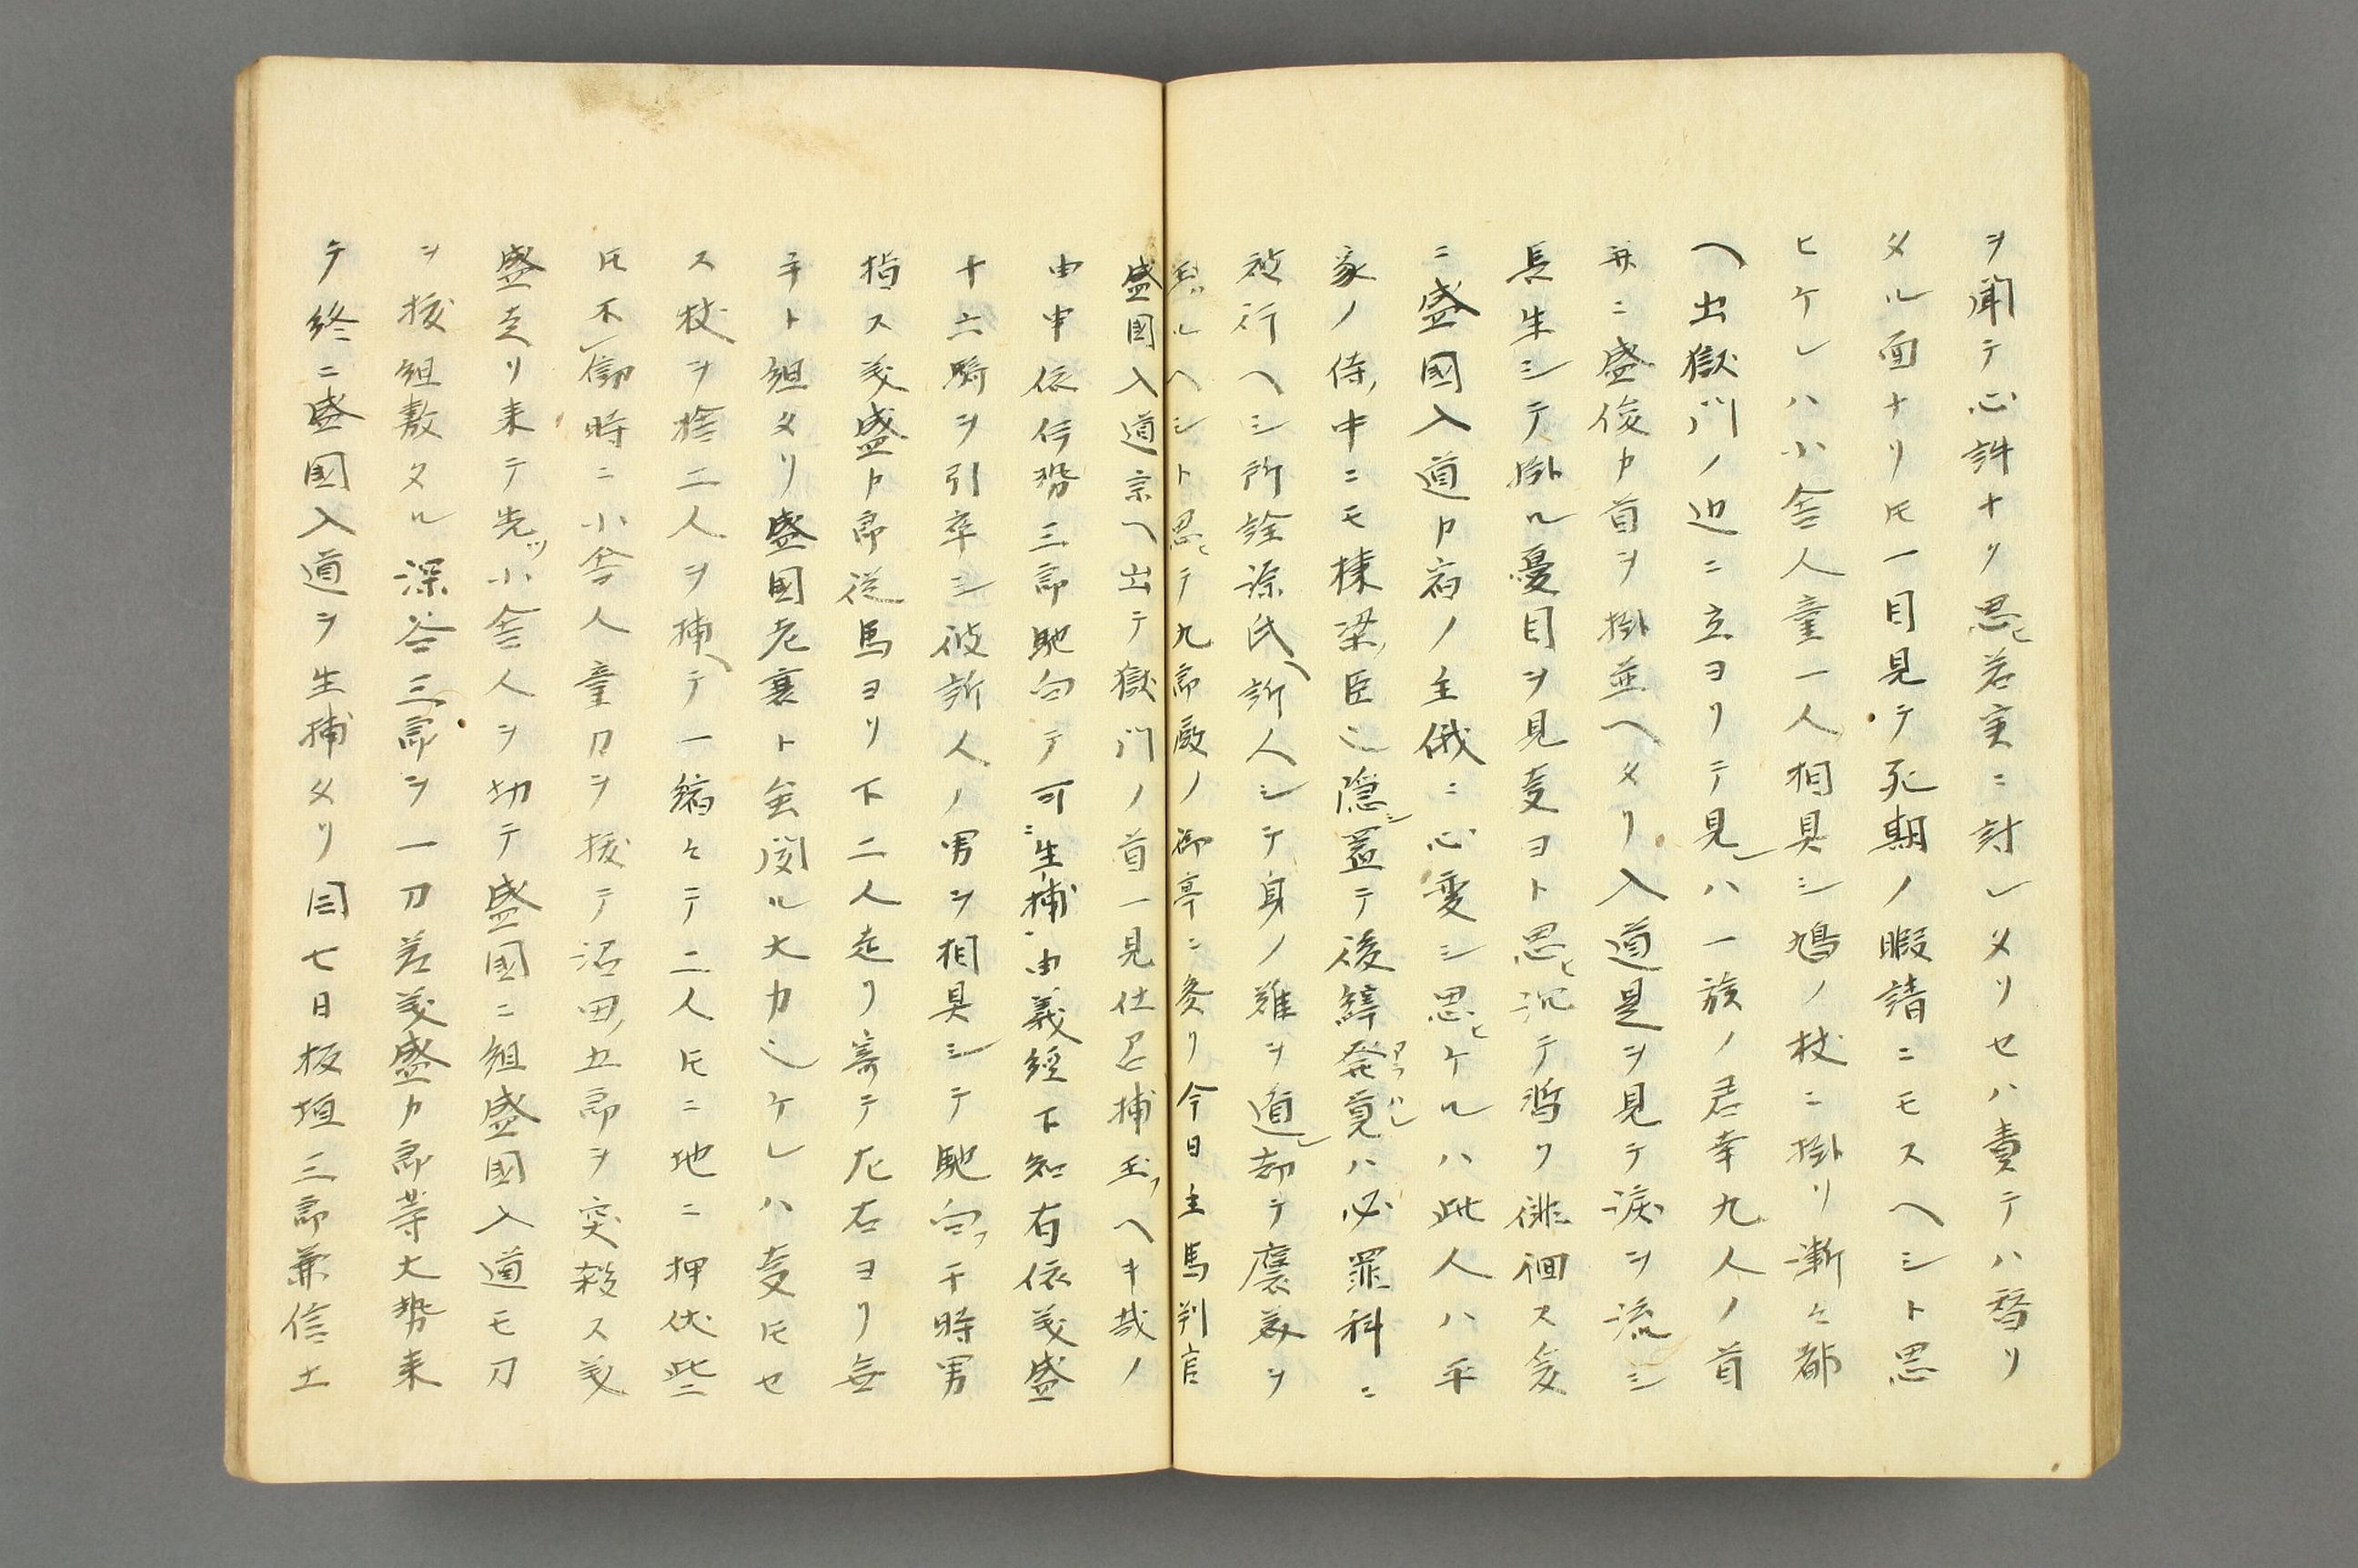 ヲ聞テ心許ナク思ヒ若実ニ討レメリセハ責テハ替リ
メル面ナリ𪜈一目見テ死期ノ暇請ニモスヘシト思
ヒケレハ小舎人童一人相具シ鳩ノ杖ニ掛リ漸々都
ヘ出獄門ノ辺ニ立ヨリテ見レハ一族ノ君幸九人ノ首
并ニ盛俊カ首ヲ掛並ヘタリ入道是ヲ見テ涙ヲ流シ
長生シテ掛ル憂目ヲ見変ヨト思ヒ沉テ暫ク徘徊ス爰
ニ盛國入道カ宿ノ主俄ニ心変シ思ヒケルハ此人ハ平
家ノ侍ノ中ニモ棟梁ノ臣也隠シ置テ後辞発覚ハ必罪科ニ
被行ヘシ所詮源氏ヘ訴人シテ身ノ難ヲ遁レ却テ褒美ヲ
ルヘシト思ヒテ九郎殿ノ御亭ニ参リ今日主馬判官
盛国入道京ヘ出テ獄門ノ首一見仕召捕玉フヘキ哉ノ
由申依伊勢三郎馳向テ可生捕由義經下知有依義盛
十六騎ヲ引卒シ彼訴人ノ男ヲ相具シテ馳向フ于時男
指ス義盛カ郎従馬ヨリ下二人走リ寄テ左右ヨリ無
手ト組タリ盛國老衰ト雖関ル大力也ケレハ変𪜈セ
ス杖ヲ捨二人ヲ捕ヘテ一縮々テ二人𪜈ニ地ニ押伏些
𪜈不働時ニ小舎人童刀ヲ抜テ沼田ノ五郎ヲ突殺ス義
盛走リ来テ先ツ小舎人ヲ切テ盛國ニ組盛國入道モ刀
ヲ抜組敷タル深谷三郎ヲ一刀差義盛カ郎等大勢来
テ終ニ盛国入道ヲ生捕メリ同七日板垣三郎兼信土